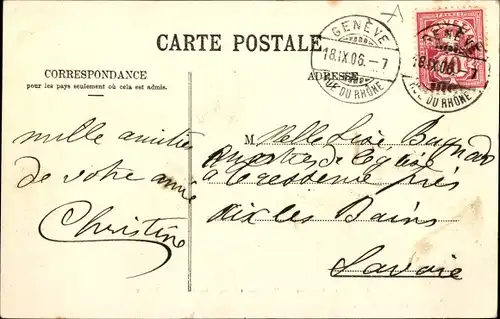 GENÈVE
18.IX.06.–7
RUE DU RHÔNE
GENÈVE
18.IX.06.–7
RUE DU RHÔNE
CARTE POSTALE
CORRESPONDANCE
pour les pays seulement où cela est admis.
ADRESSE
mille amitiés
de votre amie
Christine
M elle Lise
quartier de l'église
à Gresine près
Aix les Bains
Savoie